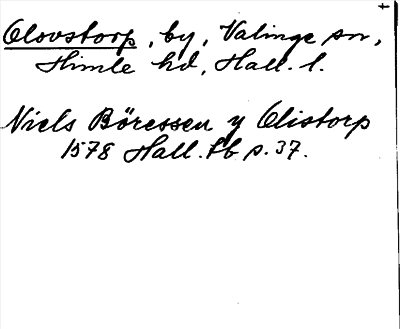 Olovstorp, by, Valinge sn,
Himle hd, Hall. l.
Niels Böressen y Olistorp
1578 Hall. tb p. 37.